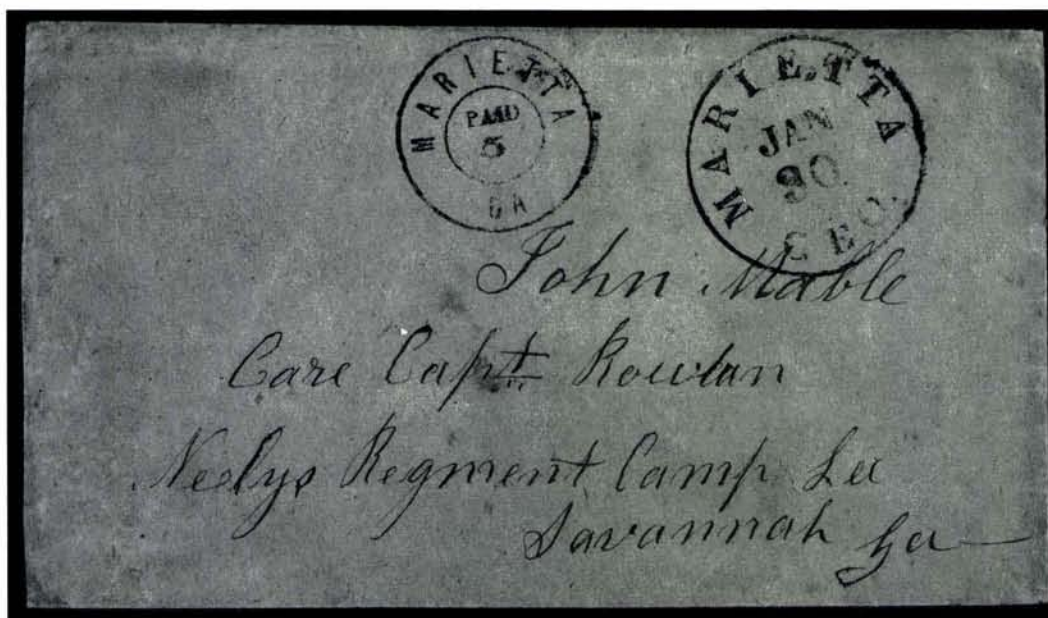 MARIETTA
PAID
5
GA
MARIETTA
JAN
30
GEO.
John Mable
Care Capt Rowlan
Neelys Regment Camp Lee
Savannah Ga